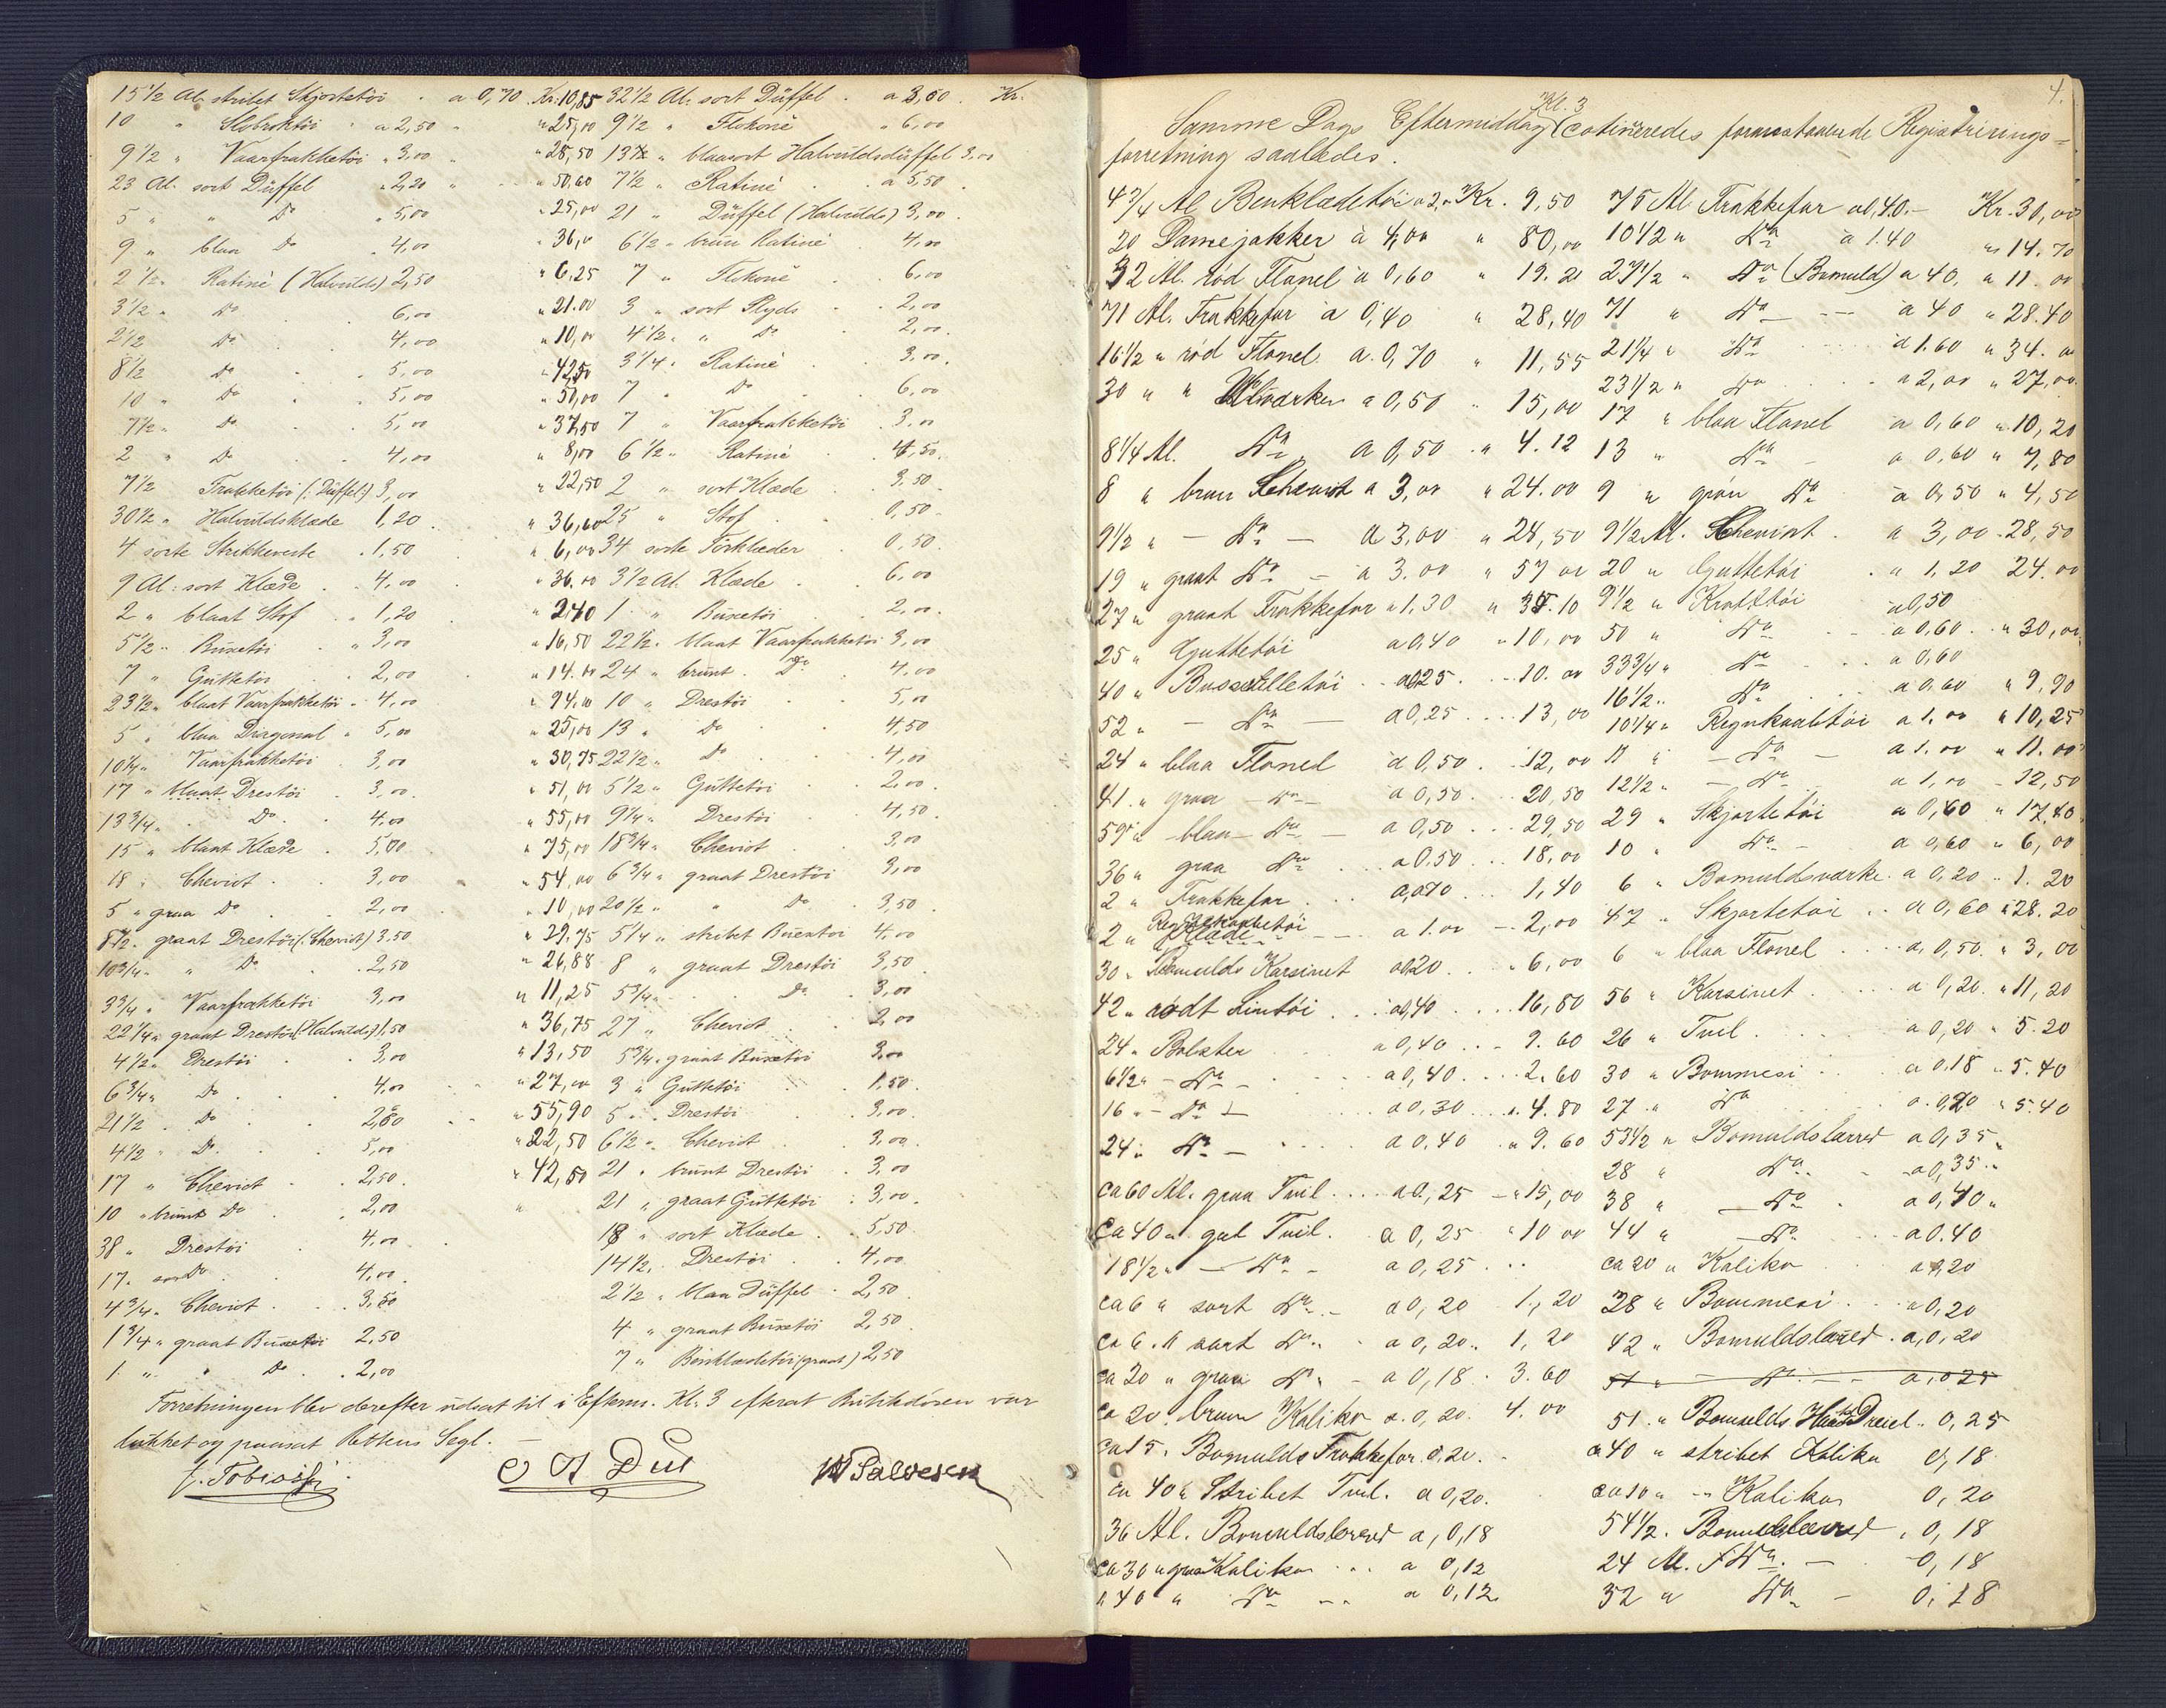 15 1/2 Al. stribet Skjortetöi . a 0,70 . Kr. 10,85
10 " Slobroktöi " a 2,50 " " 25,00
9 1/2 " Vaarfrakketöi " 3,00 " " 28,50
23 Al. sort Düffel " 2,20 " " 50,60
5 " " Do " 5,00 " 25,00
9 " blaa Do " 4,00 " 36,00
2 1/2 " Ratiné (Halvulds) 2,50 " 6,25
3 1/2 " Do . 6,00 " 21.00
2 1/2 Do . 4,00 " 10,00
8 1/2 Do . 5,00 " 42,50
10 " Do . 5,00 " 50,00
7 1/2 " Do . 5,00 " 37,50
2 " Do . 4,00 " 8,00
7 1/2 Frakketöi (: Düffel:) 3,00 " 22,50
30 1/2 " Halvuldsklæde 1,20 . " 36,60
4 sorte Strikkeveste . 1,50 " 6,00
9 Al: sort Klæde . 4,00 " 36.00
2 " blaat Stof " 1,20 " 2,40
5 1/2 " Buxetöi " 3,00 " 16,50
7 " Guttetöi . 2,00 " 14.00
23 1/2 " blaat Vaarfrakketöi . 4,00 " 94,00
5 " blaa Dragonal " 5,00 " 25,00
10 1/4 " Vaarfrakketöi . 3,00 " 30,75
17 " blaat Drestöi . 3,00 . " 51,00
13 3/4 " . Do . 4,00 " 55,00
15 " blaat Klæde . 5,00 " 75,00
18 " Cheviot . . 3,00 " 54,00
5 " graa Do . . 2,00 " 10,00
8 1/2 . graat Drestöi (: Cheviot) 3,50 " 29,75
10 3/4 " " Do . . 2,50 " 26,88
3 3/4 " Vaarfrakketöi 3,00 " 11,25
22 1/4 " graat Drestöi (Halvulds) 1,50 " 36,75
4 1/2 " Drestöi . . 3,00 " 13,50
6 3/4 " Do . . 4,00 " 27,00
21 1/2 . Do . . 2,60 " 55,90
4 1/2 " Do . . 5,00 " 22,50
17 " Cheviot . . 2,50 . " 42,50
10 " brunt Do . 2,00
38 " Drestöi . 4,00
17 . Do . 4,00
4 3/4 " Cheviot . . 3,50
1 3/4 " graat Buxetöi 2,50
1 " " Do . . 2,00
32 1/2 Al. sort Düffel . a 3,60 . Kr.
9 1/2 " Flokoné " 6,00
13 1/2 " blaasort Halvuldsdüffel 3,00
7 1/2 " Ratiné . a 5,50 .
21 " Düffel (Halvulds) 3,00 .
6 1/2 " brun Ratiné . 4,00
7 " Flokoné . . 6,00
3 " sort Plyds . . 2,00
4 1/2 " " Do . 2,00 .
3 1/4 " Ratiné . 3,00 .
7 " Do . . 6,00
7 " Vaarfrakketöi . 3,00
6 1/2 " Ratiné . 4,50 .
2 " sort Klæde . 3,50
25 " Stof . . 0,50
34 sorte Törklæder . 0,50
3 1/2 Al. Klæde . . 6,00
1 " Buxetöi . . 2,00 .
22 1/2 " blaat Vaarfrakketöi 3,00
24 " brunt . Do . 4,00
10 " Drestöi . . 5,00
13 " Do . . 4,50
22 1/2 " Do . . 4,00
5 1/2 " Guttetöi . . 2,00 .
9 1/4 " Drestöi . . 4,50 .
18 3/4 " Cheviot . . 3,00
6 3/4 " graat Drestöi 3,00
20 1/2 " " Do . 3,50
5 1/4 " stribet Buxetöi 4,00
8 " graat Drestöi 3,50
5 3/4 " . Do . 3,00
27 " Cheviot . 2,00
5 3/4 " graat Buxetöi 3,00
3 " Guttetöi . 1,50 .
5 " Drestöi . 3,00 .
6 1/2 " Cheviot . 3,00 .
21 " brunt Drestöi . 3,00
21 " graat Guttetöi . 3,00 .
18 " sort Klæde . 5,50 .
14 1/2 . Drestöi . . 4,00
2 1/2 " blaa Düffel . 2,50
4 " graat Buxetöi 2,50
7 " Benklædetöi (graat) 2,50
Forretningen blev derefter udsat til i Efterm. Kl. 3 efterat Butikdören var
lukket og paasat Rettens Segl. —
J. Tobiassen
W Salvesen
4.
Samme Dags Eftermiddag Kl. 3 cotineredes foranstaaende Registrerings=
forretning saaledes.
4 3/4 Al Benklædetöi a 2,00 Kr. 9,50
20 Damejakker à 4,00 " 80,00
32 Al. röd Flanel a 0,60 " 19.20
71 Al. Frakkefor a 0,40 " 28,40
16 1/2 " röd Flonel a. 0,70 " 11,55
30 " " a 0,50 " 15,00
8 1/4 Al. Do a 0,50 " 4.12
8 " brun Scheviot a 3,00 " 24.00
9 1/2 " — Do — a 3,00 " 28,50
19 " graat Do — a 3.00 " 57 00
27 " graat Frakkefor a 1,30 " 35.10
25 " Guttetöi a 0,40 " 10,00
40 " a 0,25 . . 10.00
52 " — Do — a 0,25 . . . 13,00
24 " blaa Flonel a 0,50 . . 12,00
41 " graa — Do — a 0,50 . . 20,50
59 " blaa — Do — a 0,50 . . . 29,50
36 " graa Do . a 0,50 . . . 18,00
2 " Frakkefor . . . a 0,70 . . . 1,40
2 " Regnkaabetöi — a 1.00 — 2,00
30 " Bomulds Karsinet a 0,20 . . " 6,00
42 " rödt Lintöi . . . a 0,40 . . . . 16,80
24 " Bolster a 0,40 . . . 9.60
6 1/2 " — Do — a 0,40 . . . . 2.60
16 " — Do — a 0,30 . . . 4.80
24 " Do — a 0,40 . . " 9.60
ca 60 Al. graa Tvil . . . . a 0,25 — " 15,00
ca 40 " gul Tvil . . a 0,25 " 10 00
18 1/2 " — Do — a 0,25 . . .
ca 6 " sort Do . — a 0,20 1,20
ca 6 " sort Do " . a 0,20 . . 1,20
ca 20 " graa Do " — a 0,18 . 3.60
ca 20 . brun Kaliko a. 0,20 . 4.00
ca 15 . Bomulds Frakkefor 0,20 . .
ca 40 " Stribet Tvil . a 0,20.
36 Al. Bomuldslærred a, 0,18
ca 30 " graa Kaliko . . . a 0,12
" 40 " Do . . . a 0,12
75 Al. Frakkefor a 0,40. — Kr. 30,00
10 1/2 " Do à 1.40 " 14.70
27 1/2 " Do (Bomuld) a 40, " 11.00
71 " Do — . . . a 40 " 28.40
21 1/4 " Do . . . . a 1.60 " 34.00
23 1/2 " Do . . . . a 2,00 " 27,00
17 " blaa Flanel a 0,60 " 10,20
13 " Do — a 0,60 " 7,80
9 " grön Do a 0,50 " 4,50
9 1/2 Al. Scheviot . a 3,00 . 28,50
20 " Guttetöi . a 1,20 24.00
9 1/2 " a 0,50
50 " Do . — a 0,60 . " 30,00
33 3/4 " Do — . . a 0,60
16 1/2 " Do . . . a 0,60 " 9,90
10 1/4 " Regnkaabtöi a 1,00 " 10,25
11 " — Do — a 1.00 " 11.00
12 1/2 " — Do . . a 1,00 — 12,50
29 " Skjortetöi a 0,60 " 17,40
10 " Do — a 0,60 " 6,00
6 " Bomuldsværke . a 0,20 . . 1.20
47 " Skjortetöi . . a 0,60 " 28.20
6 " blaa Flonel . . . . a, 0,50. " 3,00
56 " Karsinet . . . . a 0,20. " 11,20
26 " Tvil . . . a 0,20 " 5.20
30 " Bommesi . . . a 0,18 " 5.40
27 " Do . . . a. 0,20 " 5.40
53 1/2 " Bomuldslærred a 0,35 "
28 " Do . . a 0,35 . "
38 " — Do . a 0,40 "
44 " — Do . . . . a 0.40
ca 20 " Kaliko . . . a 0,20
28 " Bommesi . . . a 0,20
42 " Bomuldslærred . a, 0,20
51 " — Do . — — a, 0 25
51 " Bomulds Dreiel . . 0,25
a 40 " stribet Kaliko 0,18
ca 10 " — Kaliko 0,20
54 1/2 . Bomuldslærred . 0,18
24 Al. Do . — 0,18
32 " Do — 0,18